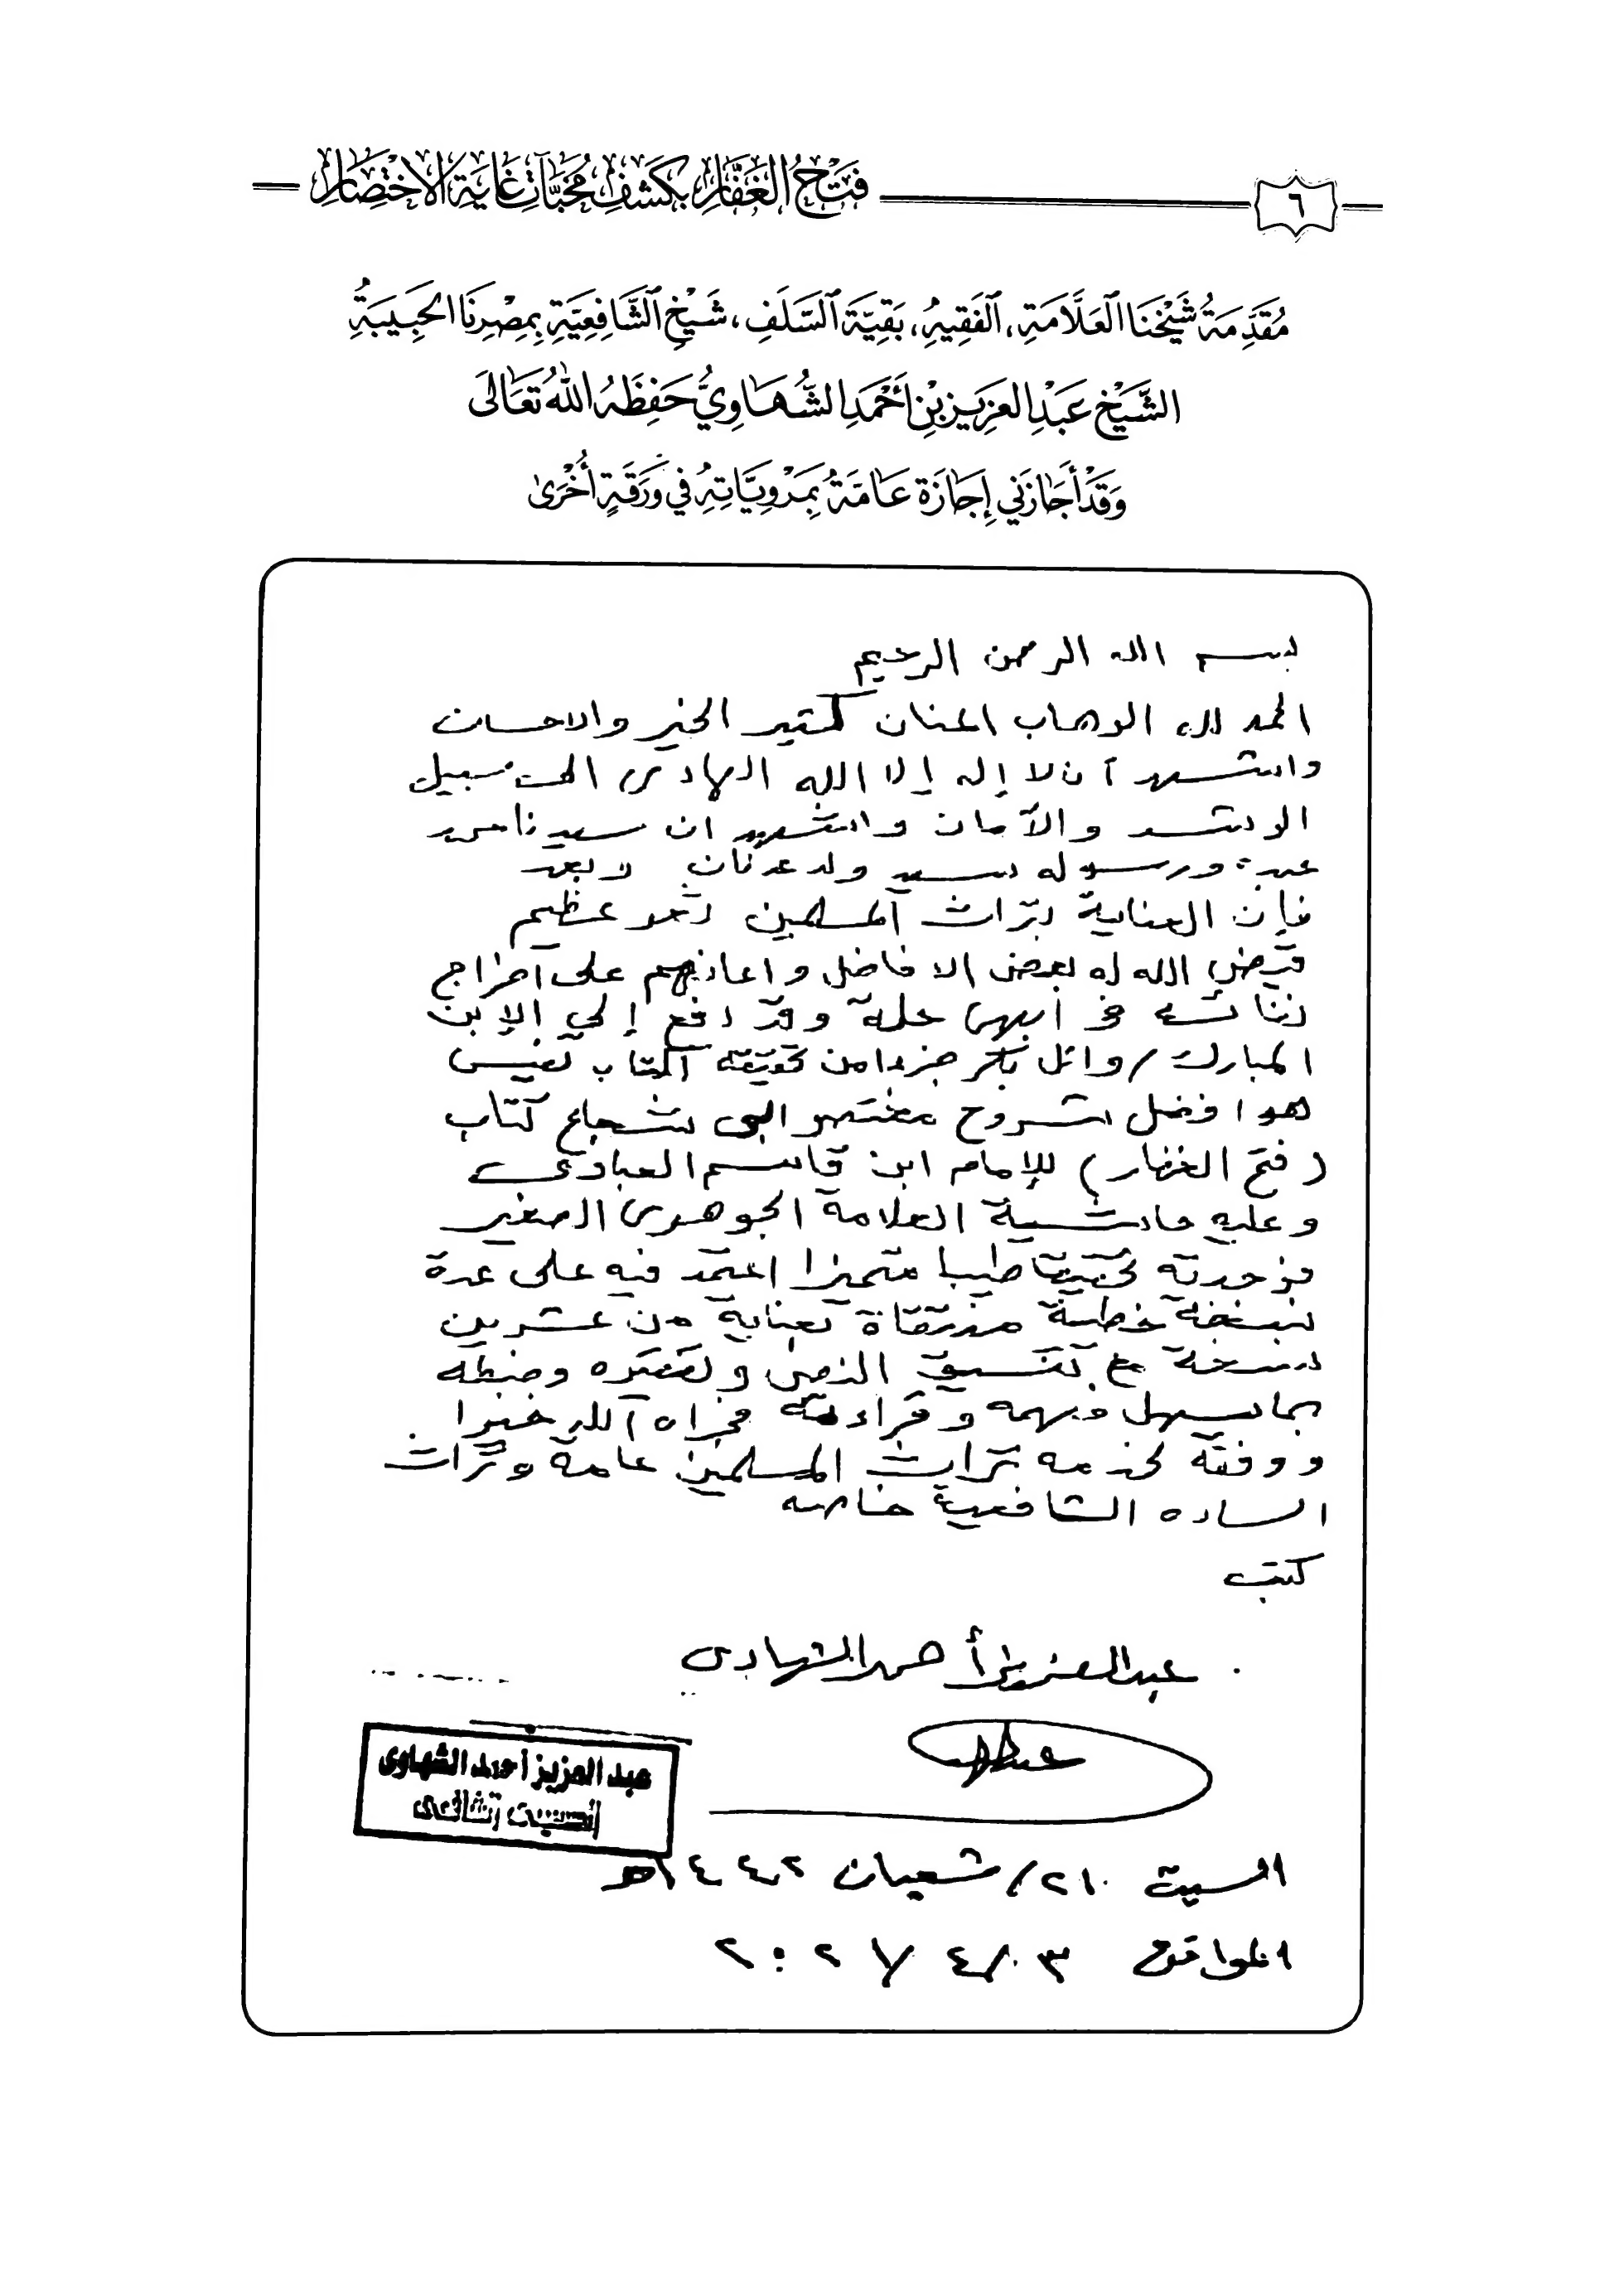 ٦
فَتْحُ الغَفَّارِ بِكَشْفِ مُخَبَّآتِ غَايَةِ الاخْتِصَارِ
مُقَدِّمَةُ شَيْخِنَا العَلَّامَةِ، الفَقِيهِ، بَقِيَّةِ السَّلَفِ، شَيْخِ الشَّافِعِيَّةِ بِمِصْرِنَا الحَبِيبَةِ
الشَّيْخِ عَبْدِ العَزِيزِ بْنِ أَحْمَدَ الشَّهَاوِيِّ حَفِظَهُ اللهُ تَعَالَى
وَقَدْ أَجَازَنِي إِجَازَةً عَامَّةً بِمَرْوِيَّاتِهِ فِي وَرَقَةٍ أُخْرَى
بسم الله الرحمن الرحيم
الحمد لله الوهاب المنان كثير الخير والاحسان
واشهد أن لا إله إلا الله الهادى إلى سبيل
الرشد والأمان واشهد ان سيدنا محمد
عبده ورسوله سيد ولد عدنان وبعد
فإن العناية بتراث المسلمين عظيم
قيض الله له بعض الافاضل واعانهم على اخراج
فى أبهى حلة وقد دفع إلي الإبن
المبارك / وائل بكر جزءا من تحقيقه لكتاب نفيس
هو افضل شروح مختصر ابى شجاع كتاب
(فتح الغفار) للإمام ابن قاسم العبادى
وعليه حاشية العلامة الجوهرى الصغير
فوجدته تحقيقا طيبا متميزا اعتمد فيه على عدة
نسخ خطية منتقاة بعناية من عشرين
نسخة مع تنسيق النص وضبطه
بما يسهل فهمه وقراءته فجزاه الله خيرا
ووفقه لخدمه تراث المسلمين عامة وتراث
الساده الشافعية خاصه
كتب
عبدالعزيز أحمد الشهاوى
عبد العزيز أحمد الشهاوى
الشافعى
السبت ٢١/ شعبان ١٤٤٢هـ
الموافق ٣/ ٤/ ٢٠٢١